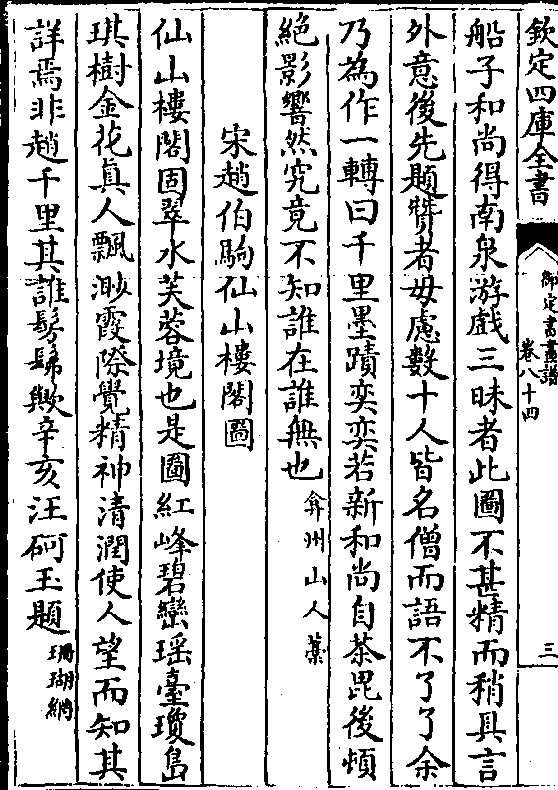 欽定四庫全書
御定書畫譜
卷八十四
三
船子和尚得南泉游戲三昧者此圖不甚精而稍具言
外意後先題贊者毋慮數十人皆名僧而語不了了余
乃為作一轉曰千里墨蹟奕奕若新和尚自荼毘後頓
絕影響然究竟不知誰在誰無也弇州山人藁
宋趙伯駒仙山樓閣圖
仙山樓閣固翠水芙蓉境也是圖紅峰碧巒瑶臺瓊島
琪樹金花真人飄渺霞際覺精神清潤使人望而知其
詳焉非趙千里其誰髣髴歟辛亥汪砢玉題珊瑚網